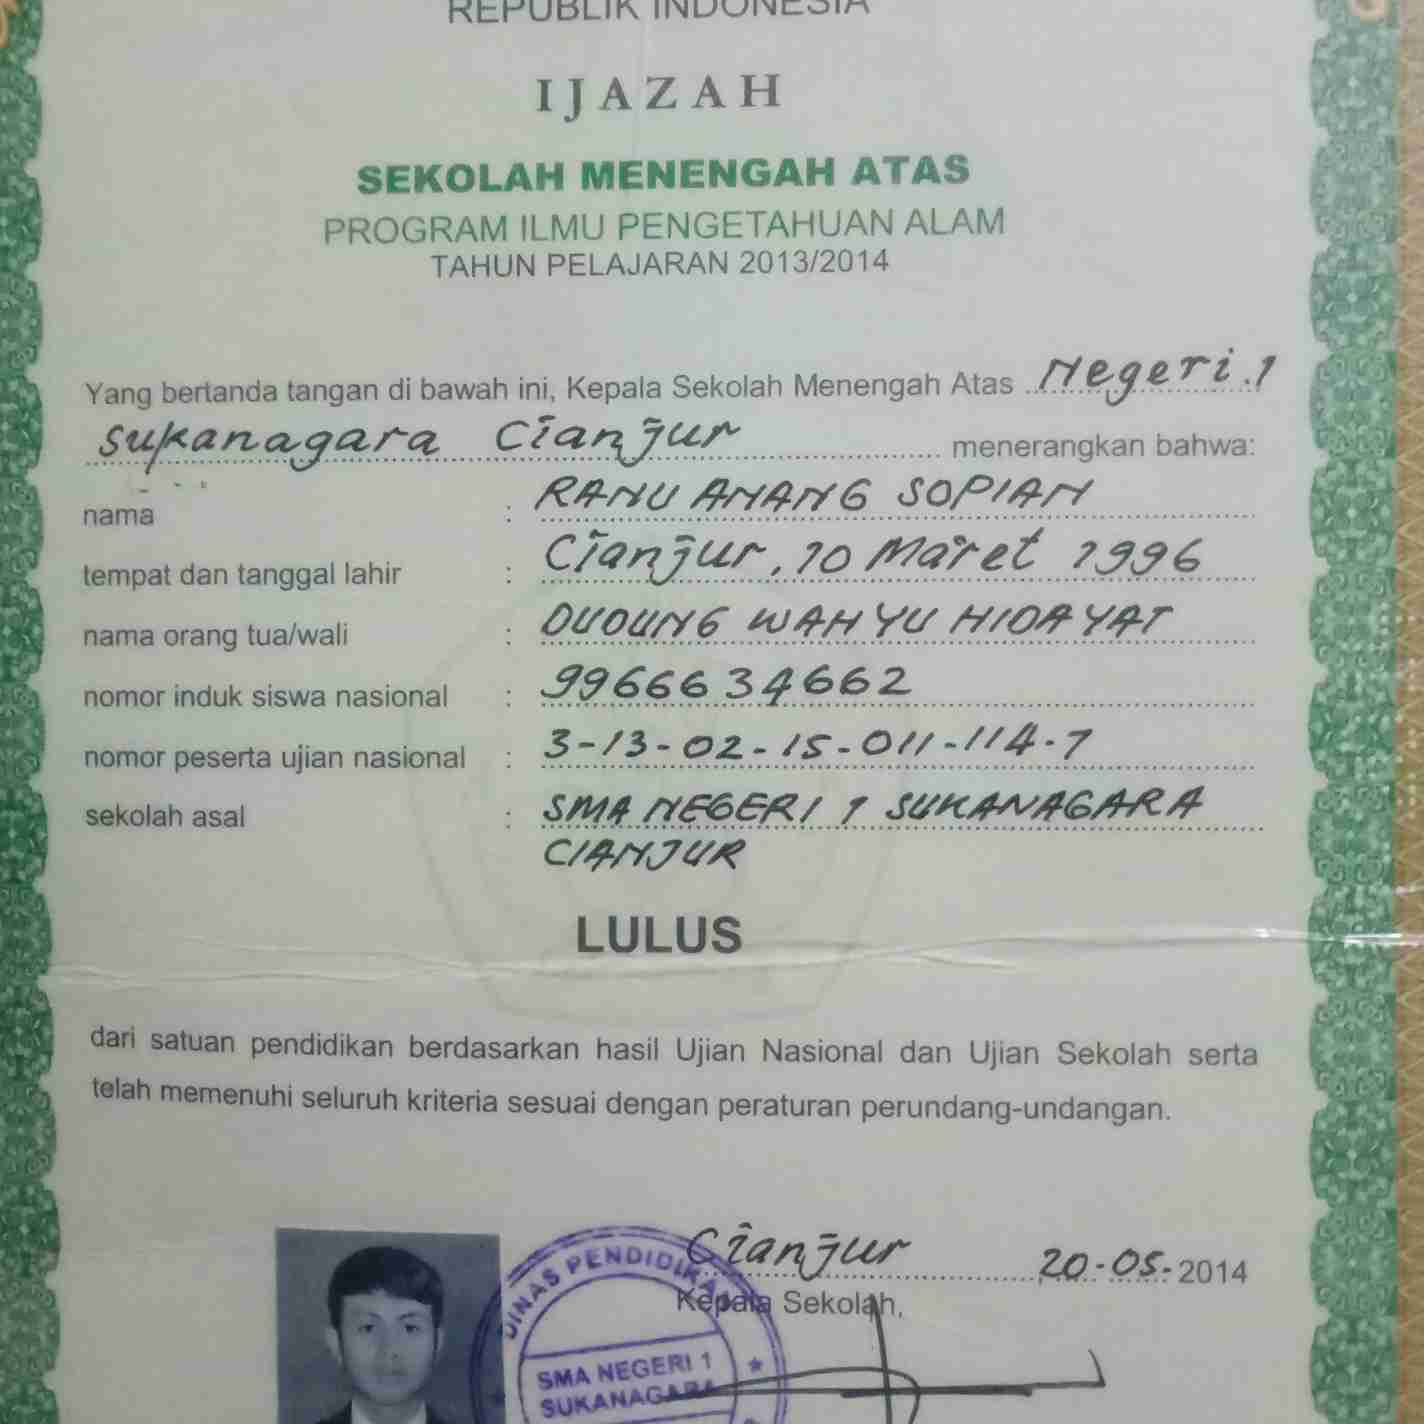 REPUBLIK INDONESIA
IJAZAH
SEKOLAH MENENGAH ATAS
PROGRAM ILMU PENGETAHUAN ALAM
TAHUN PELAJARAN 2013/2014
Yang bertanda tangan di bawah ini, Kepala Sekolah Menengah Atas Negeri 1
Sukanagara Cianjur menerangkan bahwa:
nama : RANU ANANG SOPIAN
tempat dan tanggal lahir : Cianjur, 10 Maret 1996
nama orang tua/wali : DUDUNG WAHYU HIDAYAT
nomor induk siswa nasional : 9966634662
nomor peserta ujian nasional : 3-13-02-15-011-114-7
sekolah asal : SMA NEGERI 1 SUKANAGARA
CIANJUR
LULUS
dari satuan pendidikan berdasarkan hasil Ujian Nasional dan Ujian Sekolah serta
telah memenuhi seluruh kriteria sesuai dengan peraturan perundang-undangan.
Cianjur 20-05-2014
Kepala Sekolah,
DINAS PENDIDIKAN
SMA NEGERI 1
SUKANAGARA